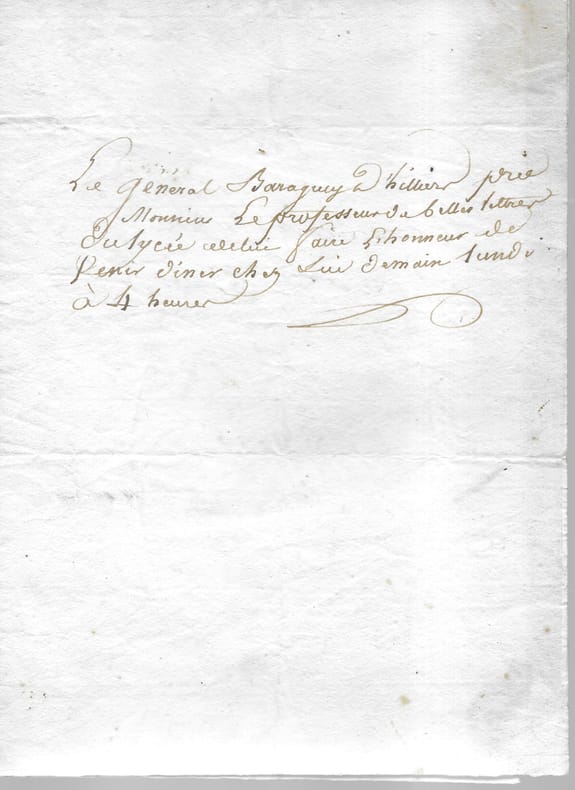 Le général Baraguey d'hilliers prie
Monsieur Le professeur de belles lettres
du lycée de lui faire L'honneur de
Venir diner chez Lui demain lundi
à 4 heures